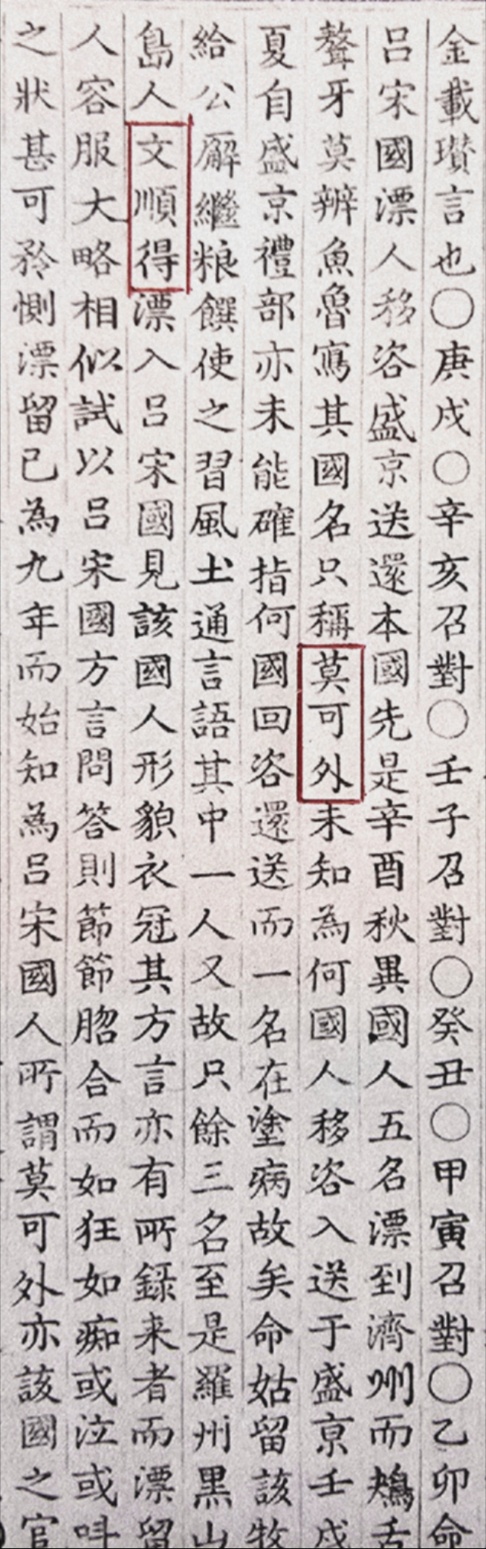 金載瓚言也○庚戌○辛亥召對○壬子召對○癸丑○甲寅召對○乙卯命
呂宋國漂人移咨盛京送還本國先是辛酉秋異國人五名漂到濟州而鴂舌
聱牙莫辨魚魯寫其國名只稱莫可外未知為何國人移咨入送于盛京壬戌
夏自盛京禮部亦未能確指何國回咨還送而一名在塗病故矣命姑留該牧
給公廨繼粮饌使之習風土通言語其中一人又故只餘三名至是羅州黑山
島人文順得漂入呂宋國見該國人形貌衣冠其方言亦有所錄来者而漂留
人容服大略相似試以呂宋國方言問答則節節脗合而如狂如痴或泣或呌
之狀甚可矜惻漂留已為九年而始知為呂宋國人所謂莫可外亦該國之官